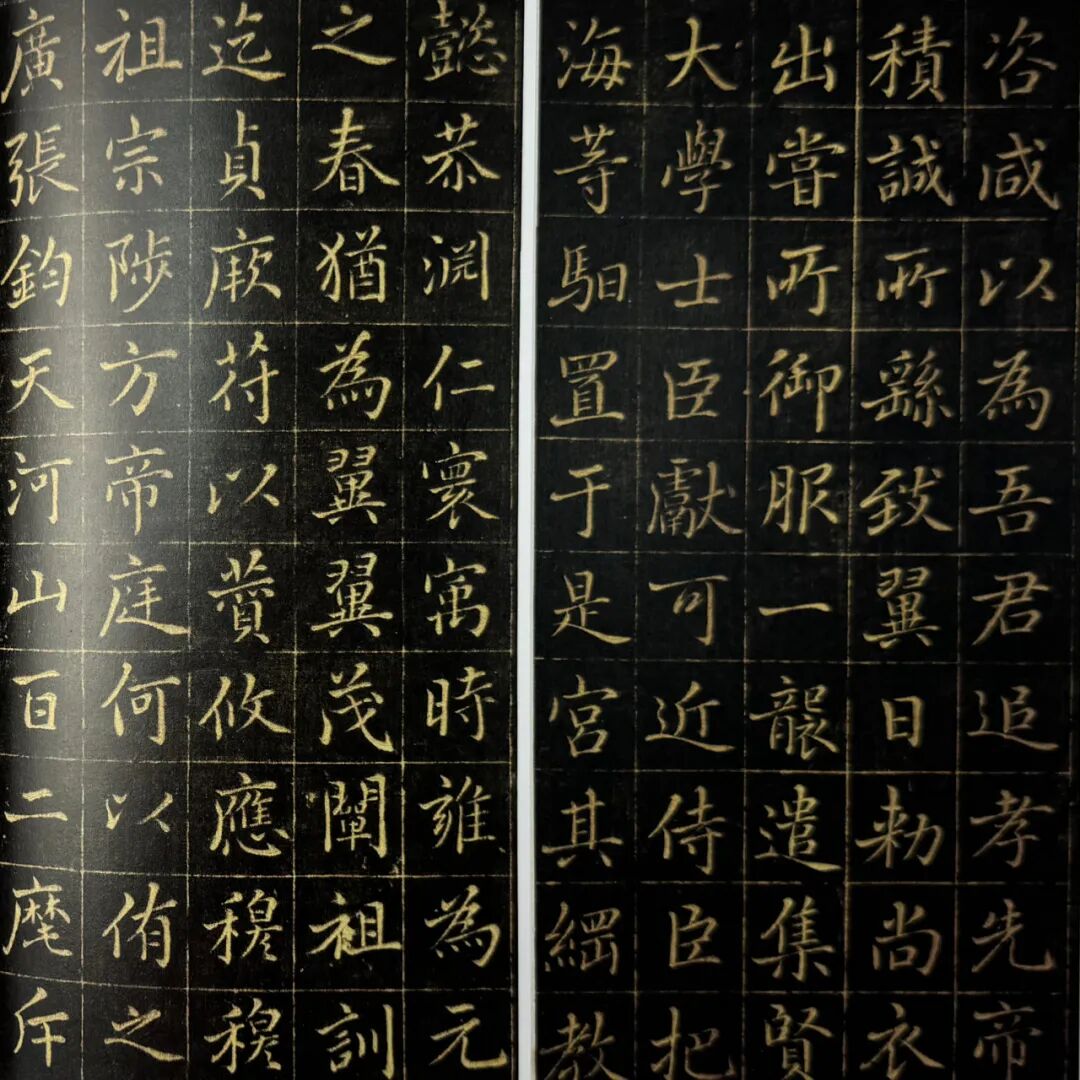 咨咸以為吾君追孝先帝
積誠所繇致翼日勅尚衣
出嘗所御服一襲遣集賢
大學士臣獻可近侍臣把
海等馹置于是宮其綱教
懿恭淵仁寰寓時雍為元
之春猶為翼翼茂闡祖訓
迄貞厥符以蕡攸應穆穆
祖宗陟方帝庭何以侑之
廣張鈞天河山百二麾斥